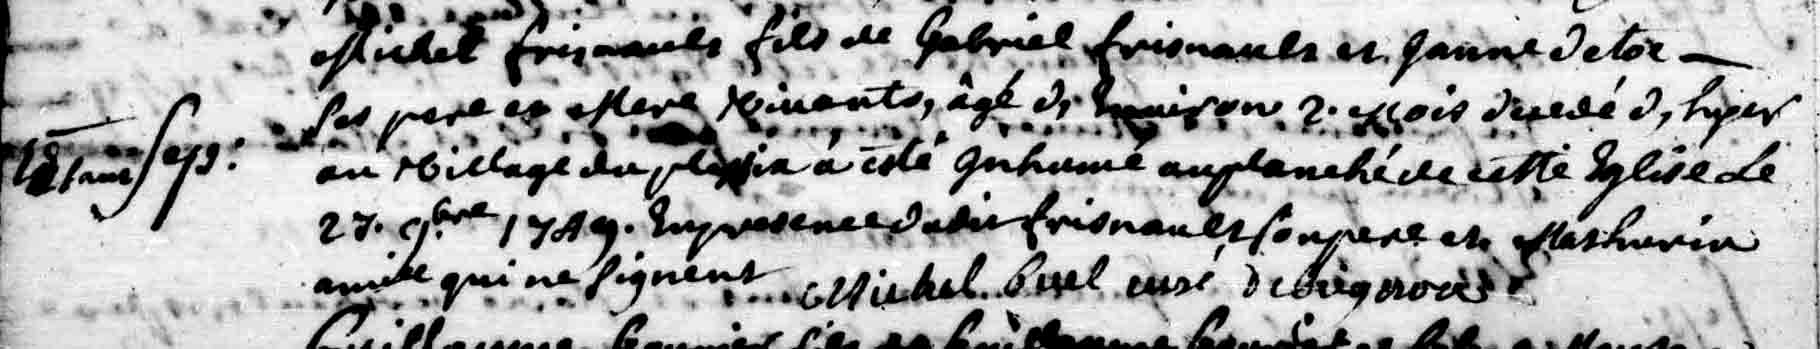 Michel frisnault fils de Gabriel frisnault et Janne
ses pere et Mere vivants, âgé d'environ 2. mois decedé d'hyer
Sep:
au village du plessix a esté Inhumé au planché de cette Eglise Le
27. 9bre 1749. En presence dudit frisnault son pere et Mathurin
qui ne signent Michel Buel curé
Guillaume fils de Guillaume